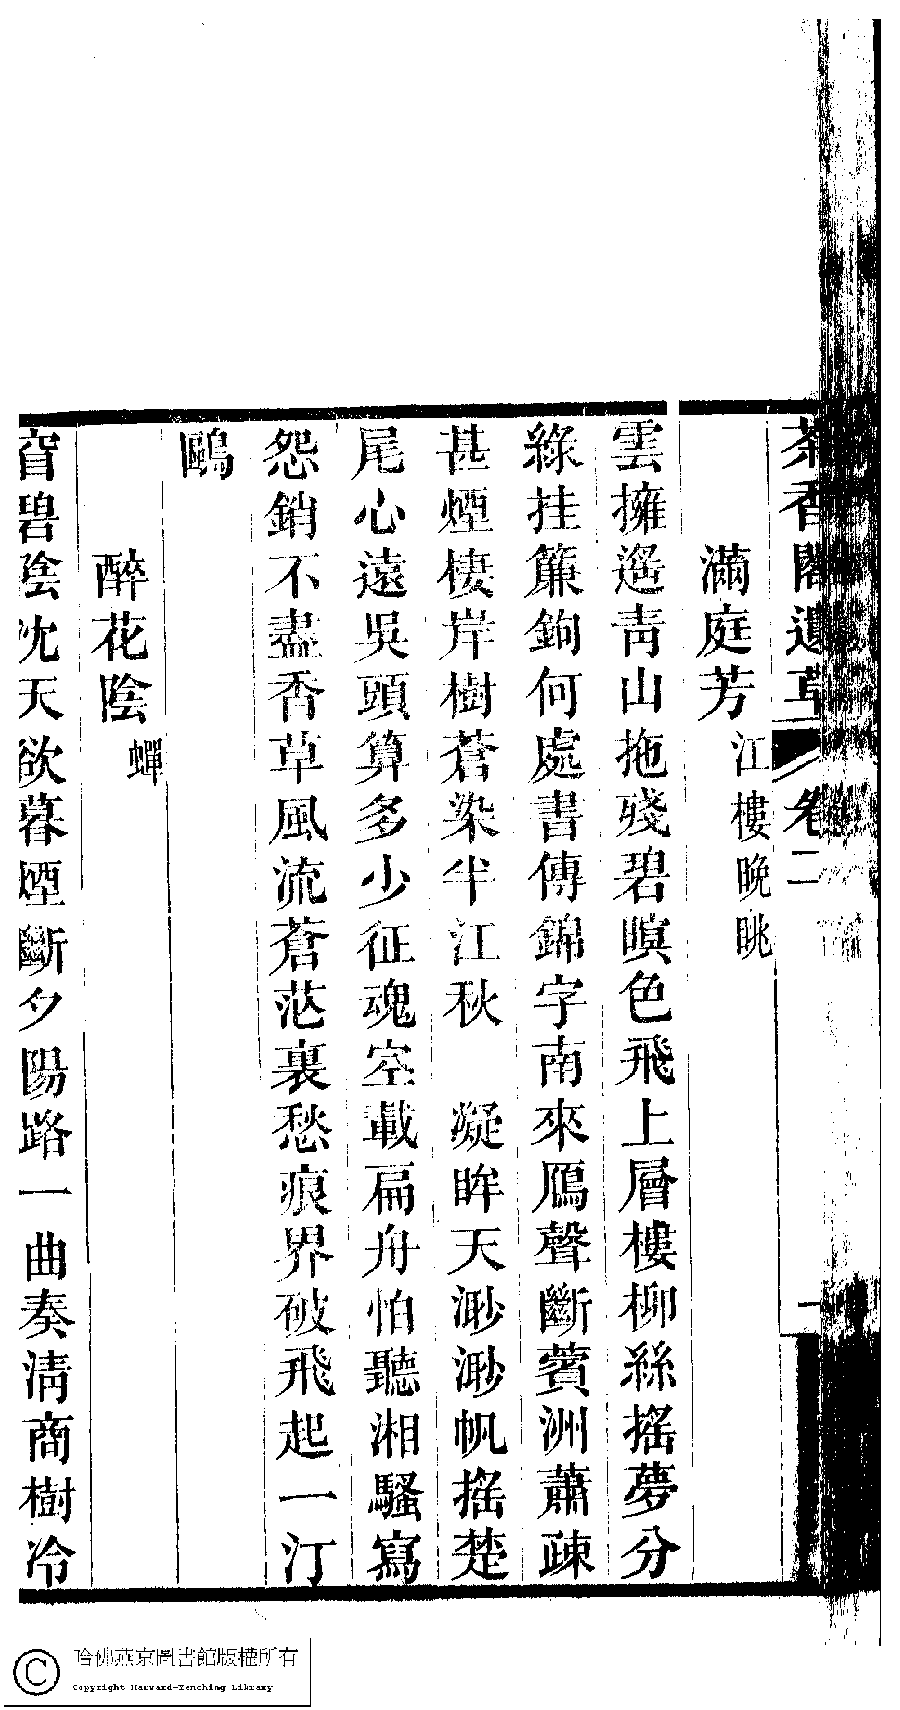 茶香閣遺草 卷二 一
滿庭芳 江樓晚眺
雲擁遥靑山拖殘碧暝色飛上層樓柳絲搖夢分
綠挂簾鉤何處書傳錦字南來鴈聲斷蘋洲蕭疎
甚煙棲岸樹蒼染半江秋 凝眸天渺渺帆搖楚
尾心遠吳頭算多少征魂空載扁舟怕聽湘騷寫
怨銷不盡香草風流蒼茫裏愁痕界破飛起一汀
鷗
醉花陰 蟬
窅碧陰沈天欲暮煙斷夕陽路一曲奏淸商樹冷
哈佛燕京圖書館版權所有
Copyright Harvard-Yenching Library